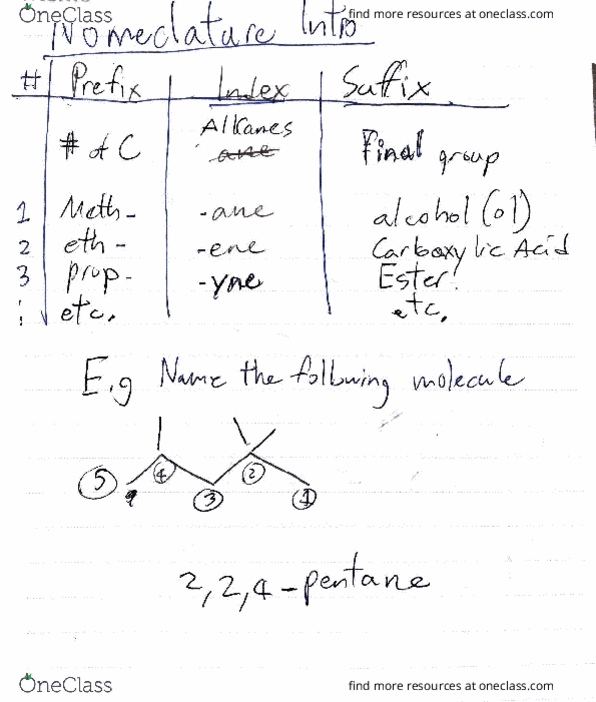 OneClass find more resources at oneclass.com
Nomeclature Intro
# Prefix Index Suffix
# of C Alkanes Final group
ane
1 Meth- -ane alcohol (ol)
2 eth- -ene Carboxylic Acid
3 prop- -yne Ester!
⋮ etc. etc.
E.g Name the following molecule
5 4 3 2 1
2,2,4-pentane
OneClass find more resources at oneclass.com